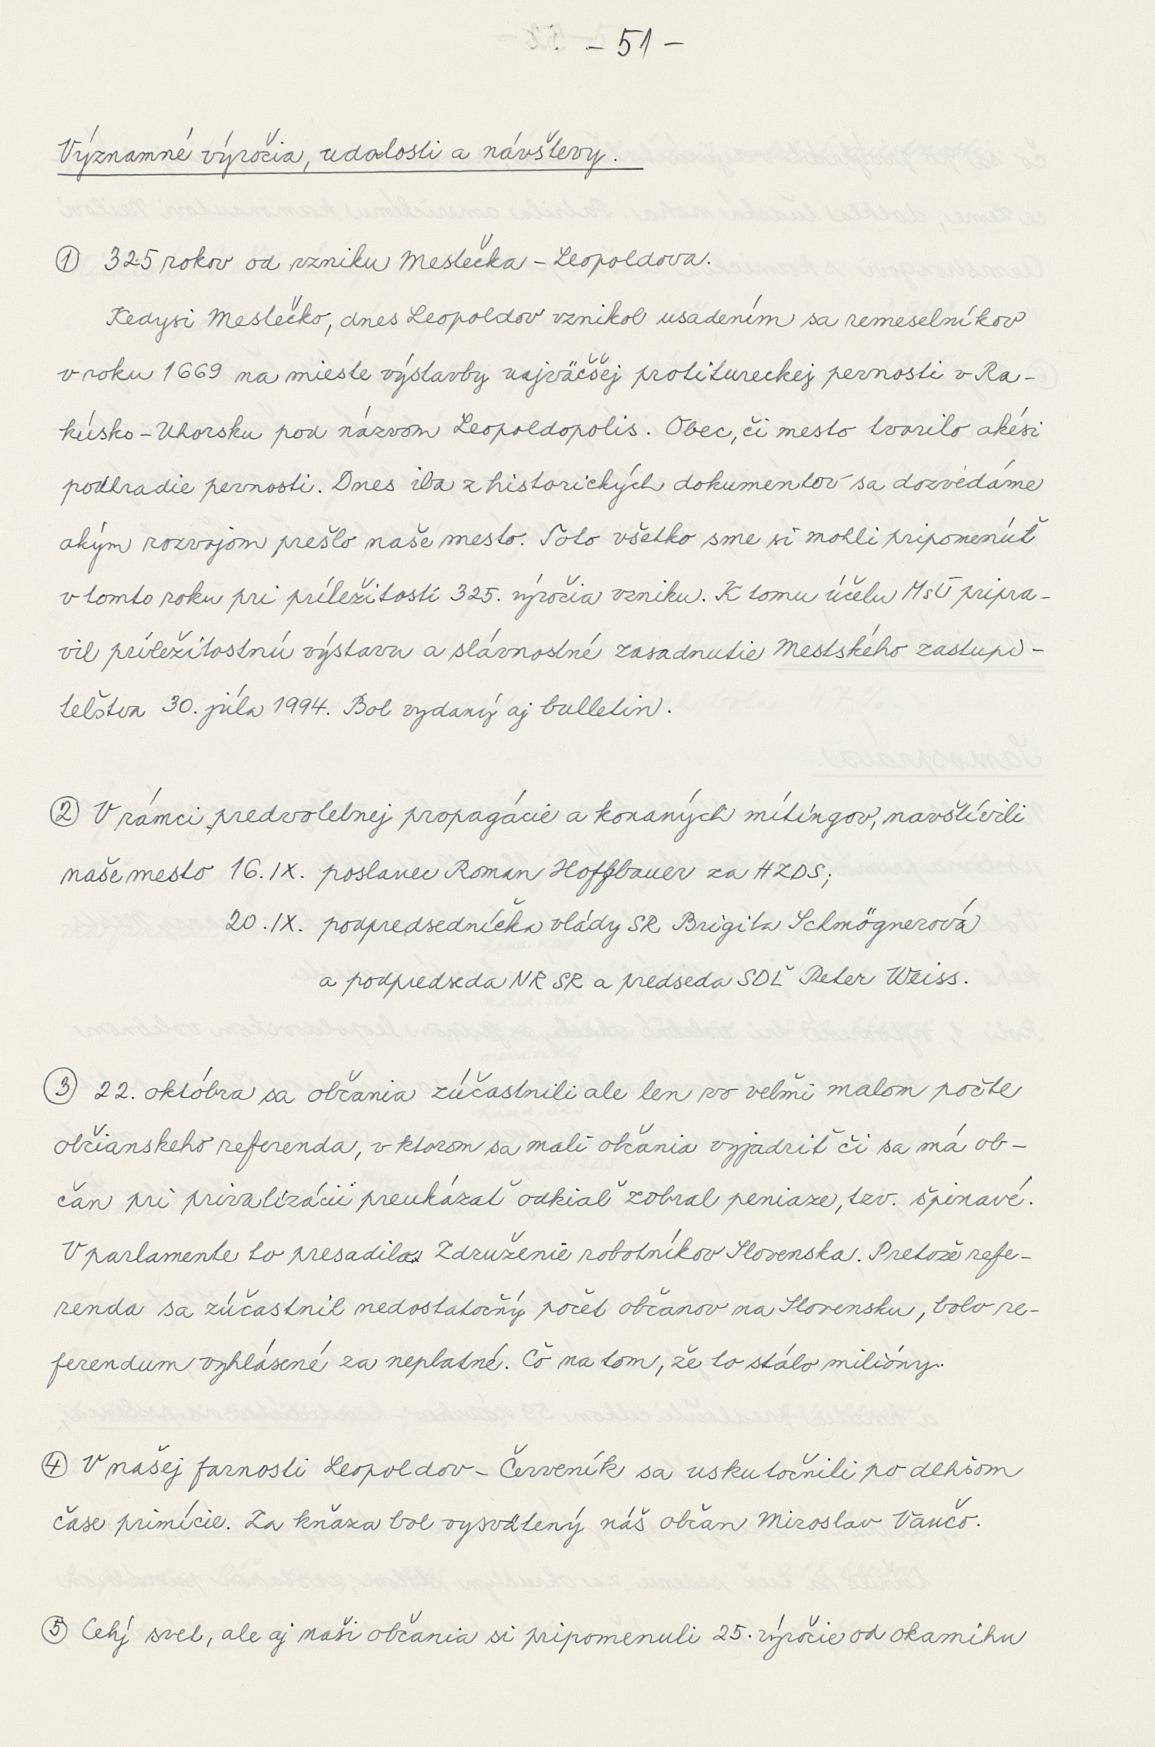 - 51 -
Významné výročia, udalosti a návštevy.
① 325 rokov od vzniku Mestečka - Leopoldova.
Kedysi Mestečko, dnes Leopoldov vznikol usadením sa remeselníkov
v roku 1669 na mieste výstavby najväčšej protitureckej pevnosti v Ra-
kúsko-Uhorsku pod názvom Leopoldopolis. Obec, či mesto tvorilo akési
podhradie pevnosti. Dnes iba z historických dokumentov sa dozvedáme
akým rozvojom prešlo naše mesto. Toto všetko sme si mohli pripomenúť
v tomto roku pri príležitosti 325. výročia vzniku. K tomu účelu MsÚ pripra-
vil príležitostnú výstavu a slávnostné zasadnutie Mestského zastupi-
teľstva 30. júla 1994. Bol vydaný aj bulletin.
② V rámci predvolebnej propagácie a konaných mítingov, navštívili
naše mesto 16. IX. poslanec Roman Hoffbauer za HZDS;
20. IX. podpredsedníčka vlády SR Brigita Schmögnerová
a podpredseda NR SR a predseda SDĽ Peter Weiss.
③ 22. októbra sa občania zúčastnili ale len vo veľmi malom počte
občianskeho referenda, v ktorom sa mali občania vyjadriť či sa má ob-
čan pri privatizácii preukázať odkiaľ zobral peniaze, tzv. špinavé.
V parlamente to presadila Združenie robotníkov Slovenska. Pretože refe-
renda sa zúčastnil nedostatočný počet občanov na Slovensku, bolo re-
ferendum vyhlásené za neplatné. Čo na tom, že to stálo milióny.
④ V našej farnosti Leopoldov - Červeník sa uskutočnili po dlhšom
čase primície. Za kňaza bol vysvätený náš občan Miroslav Vančo.
⑤ Celý svet, ale aj naši občania si pripomenuli 25. výročie od okamihu